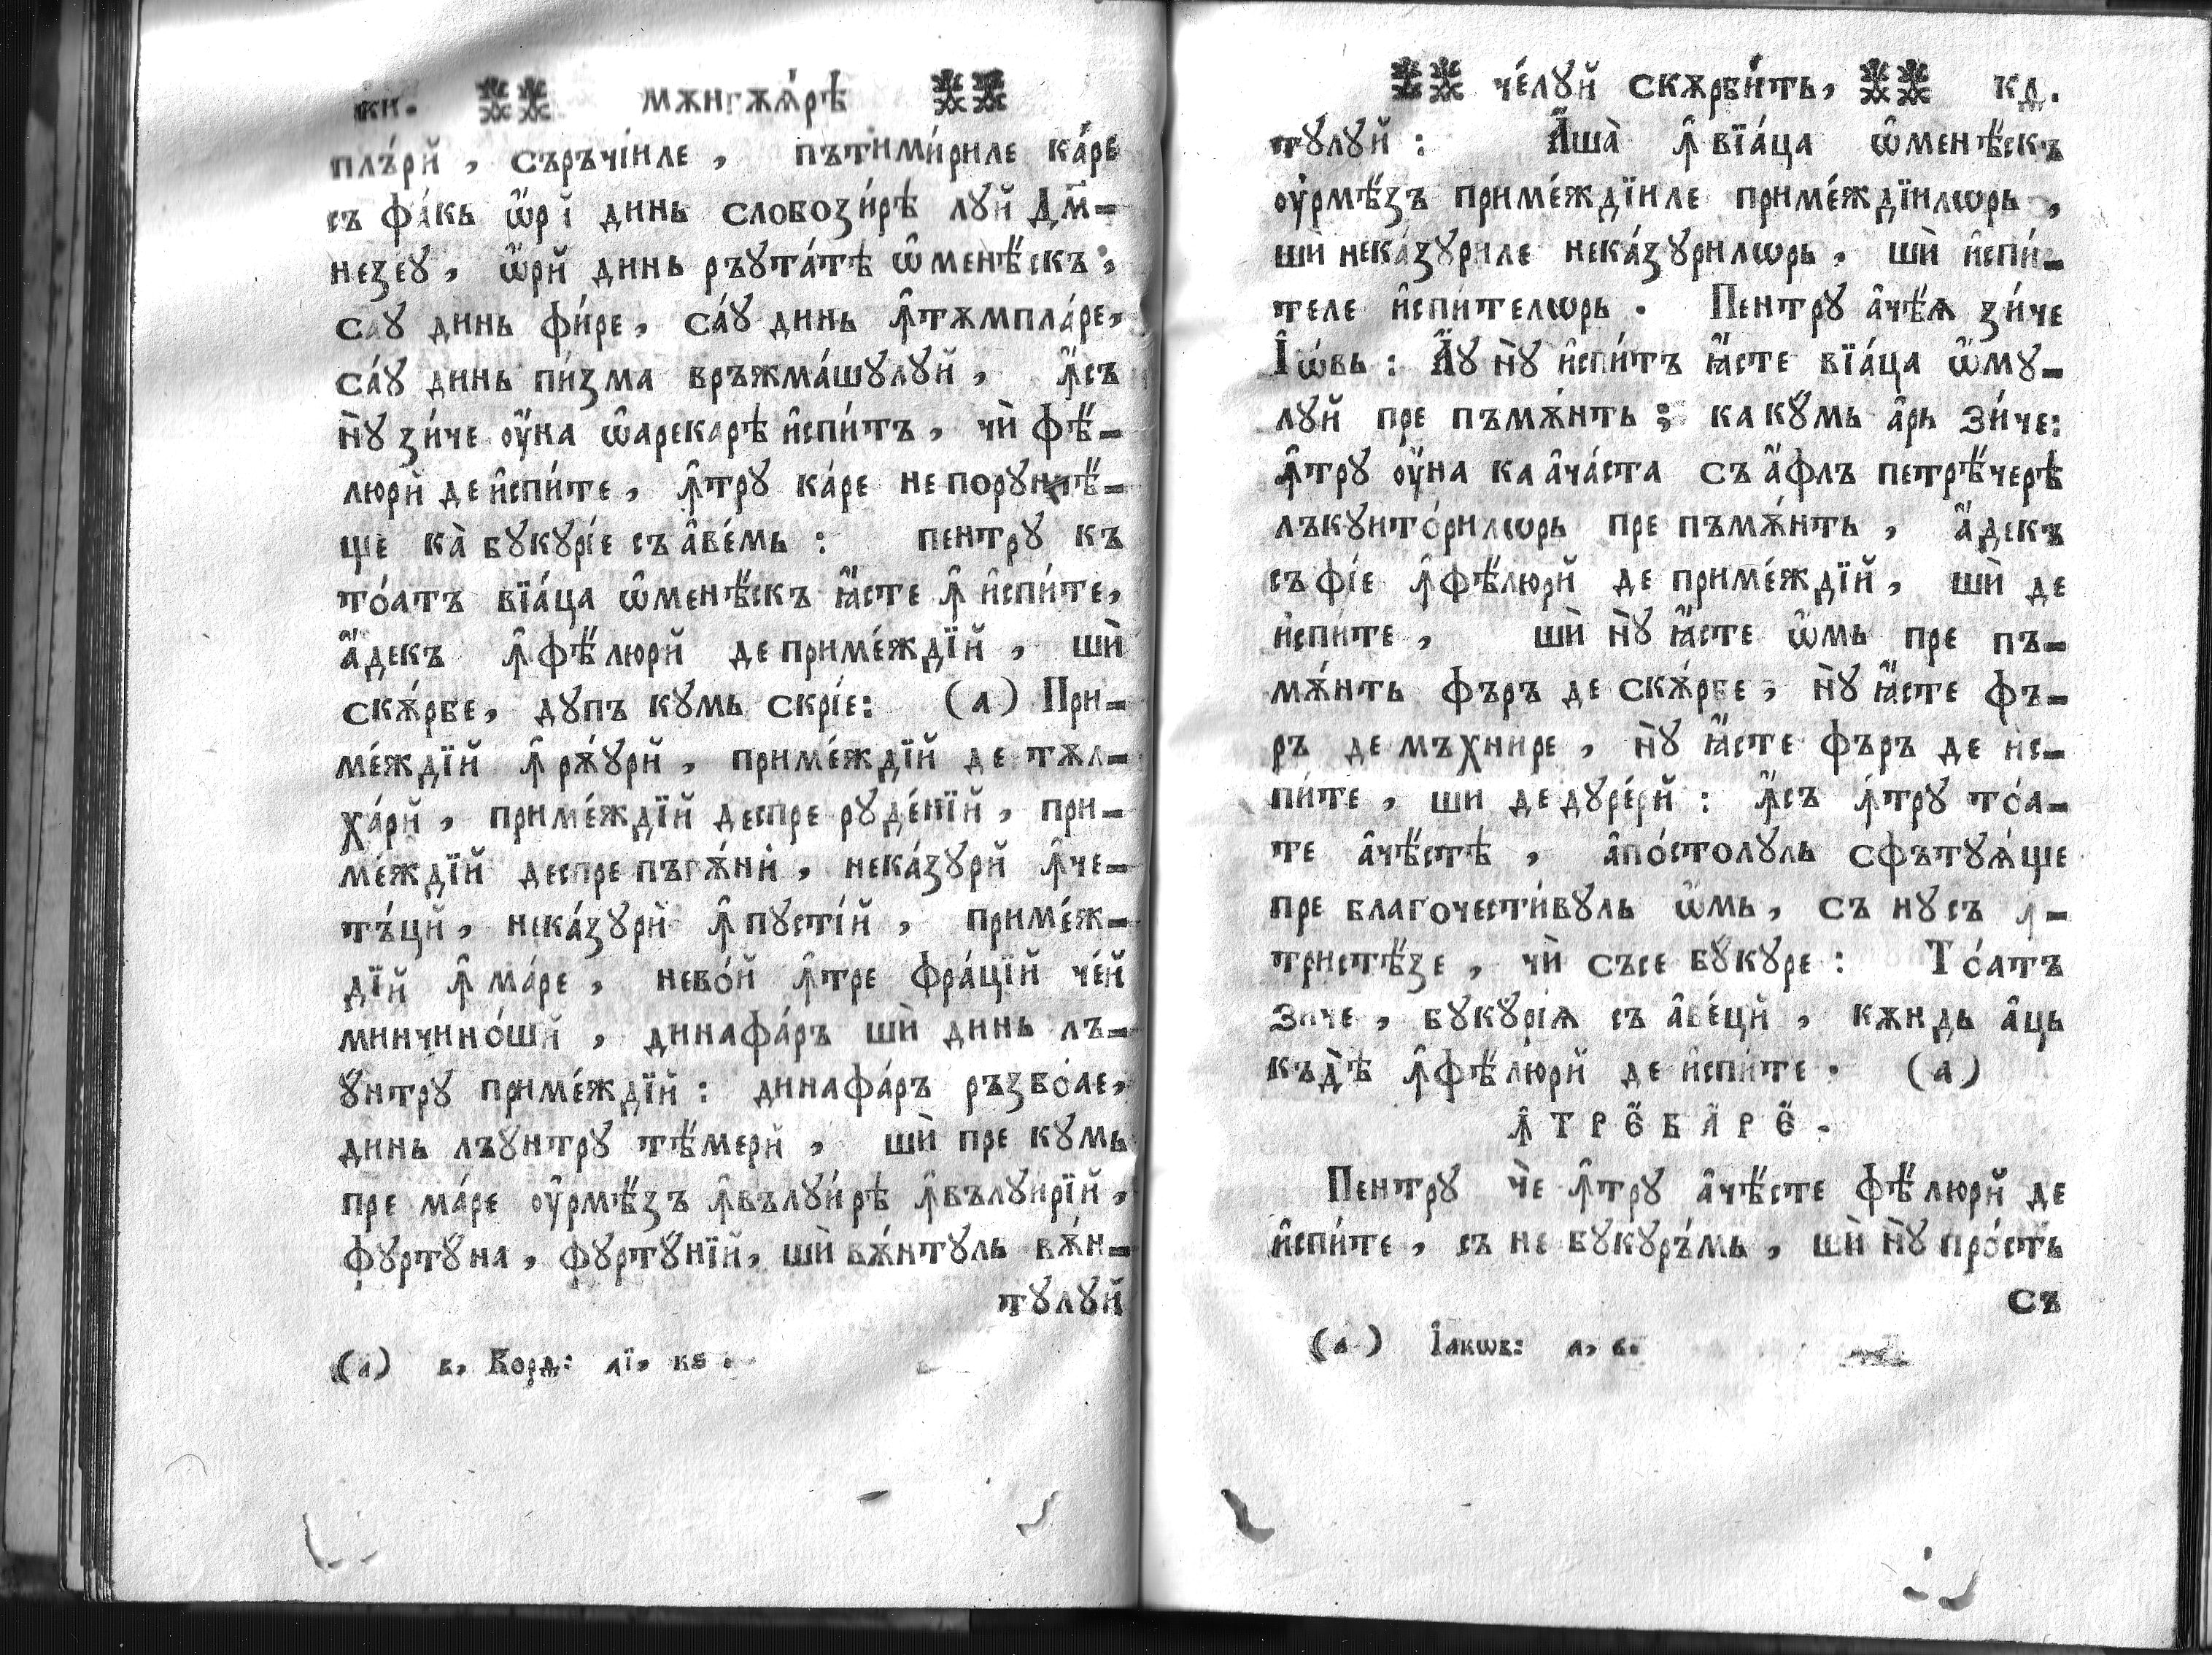 кн. мѫнгѫꙗ́рѣ
плъ́рй , съръчі́иле , пътими́риле ка́ре
съ фа́кь ѡ҆́рі динь слобози́рѣ луй Дм҃-
незеу , ѡ҆́рй динь ръута́тѣ ѡ҆менѣ́скъ ,
сау динь фи́ре , са́у динь ꙟ҆тѫмпла́ре ,
са́у динь пи́зма връжма́шулуй , ꙟ҆́съ
ну̀ зи́че ѹ҆́на ѡ҆арекарѣ и҆спи́тъ , чѝ фѣ́-
люрй де и҆спи́те , ꙟ҆тру ка́ре не порунчѣ́-
ще ка̀ букурі́е съ а҆ве́мь : пентру къ
то́атъ вїа́ца ѡ҆менѣ́скъ ꙗ҆́сте ꙟ҆ и҆спи́те ,
а҆́декъ ꙟ҆ фѣ́люрй де приме́ждїй , шѝ
скѫ́рбе , дупъ кумь скрі́е : (а) При-
ме́ждїй ꙟ҆ рѫ́урй , приме́ждїй де тѫл-
ха́рй , приме́ждїй деспре руде́нїй , при-
ме́ждїй деспре пъгѫ́нй , нека́зурй ꙟ҆че-
тъ́цй , нека́зурй ꙟ҆ пусті́й , приме́ж-
дїй ꙟ҆ ма́ре , нево́й ꙟ҆тре фра́цїй че́й
минчино́шй , динафа́ръ шѝ динь лъ-
у́нтру приме́ждїй : динафа́ръ ръзбо́ае ,
динь лъунтру тѣ́мерй , шѝ пре кумь
пре ма́ре ѹ҆рмѣ́зъ ꙟ҆вълуи́рѣ ꙟ҆вълуирїй ,
фурту́на , фурту́нїй , шѝ вѫ́нтуль вѫ́н-
тулуй
(а) в, Корд: аі, кѕ .
че́луй скѫрби́ть , кд.
тулуй : А҆ша̀ ꙟ҆ вїа́ца ѡ҆менѣ́скъ
ѹ҆рмѣ́зъ приме́ждїиле приме́ждїилѡрь ,
ши нека́зуриле нека́зурилѡрь , шѝ и҆спи́-
теле и҆спи́телѡрь . Пентру а҆чѣ́ѧ зи́че
І҆ѡ́вь : А҆́у ну̀ и҆спи́тъ ꙗ҆́сте вїа́ца ѡ҆́му-
луй пре пъмѫ́нть ; ка ку́мь а҆рь зи́че :
ꙟ҆тру ѹ҆́на ка а҆ча́ста съ а҆́флъ петрѣ́черѣ
лъкуито́рилѡрь пре пъмѫ́нть , а҆́декъ
съ фі́е ꙟ҆ фѣ́люрй де приме́ждїй , шѝ де
и҆спите , шѝ ну̀ ꙗ҆́сте ѡ҆мь пре пъ-
мѫ́нть фъръ де скѫ́рбе , ну̀ ꙗ҆́сте фъ-
ръ де мъхнире , ну̀ ꙗ҆́сте фъръ де ис-
пи́те , ши де дуре́рй : ꙟ҆́съ ꙟ҆тру то́а-
те а҆чѣ́стѣ , а҆по́столуль сфътуѧ́ще
пре благочести́вуль ѡ҆мь , съ ну съ ꙟ-
тристѣ́зе , чѝ съсе бу́куре : То́атъ
зиче , букурі́ѧ съ а҆ве́цй , кѫндь а҆ць
къдѣ̀ ꙟ҆ фѣ́люрй де и҆спи́те . (а)
ꙞТРЕБАРЕ .
Пентру чѐ ꙟ҆тру а҆чѣ́сте фѣ́люрй де
и҆спи́те , съ не букуръ́мь , шѝ ну̀ про́сть
съ
(а) І҆акѡв: а, в.